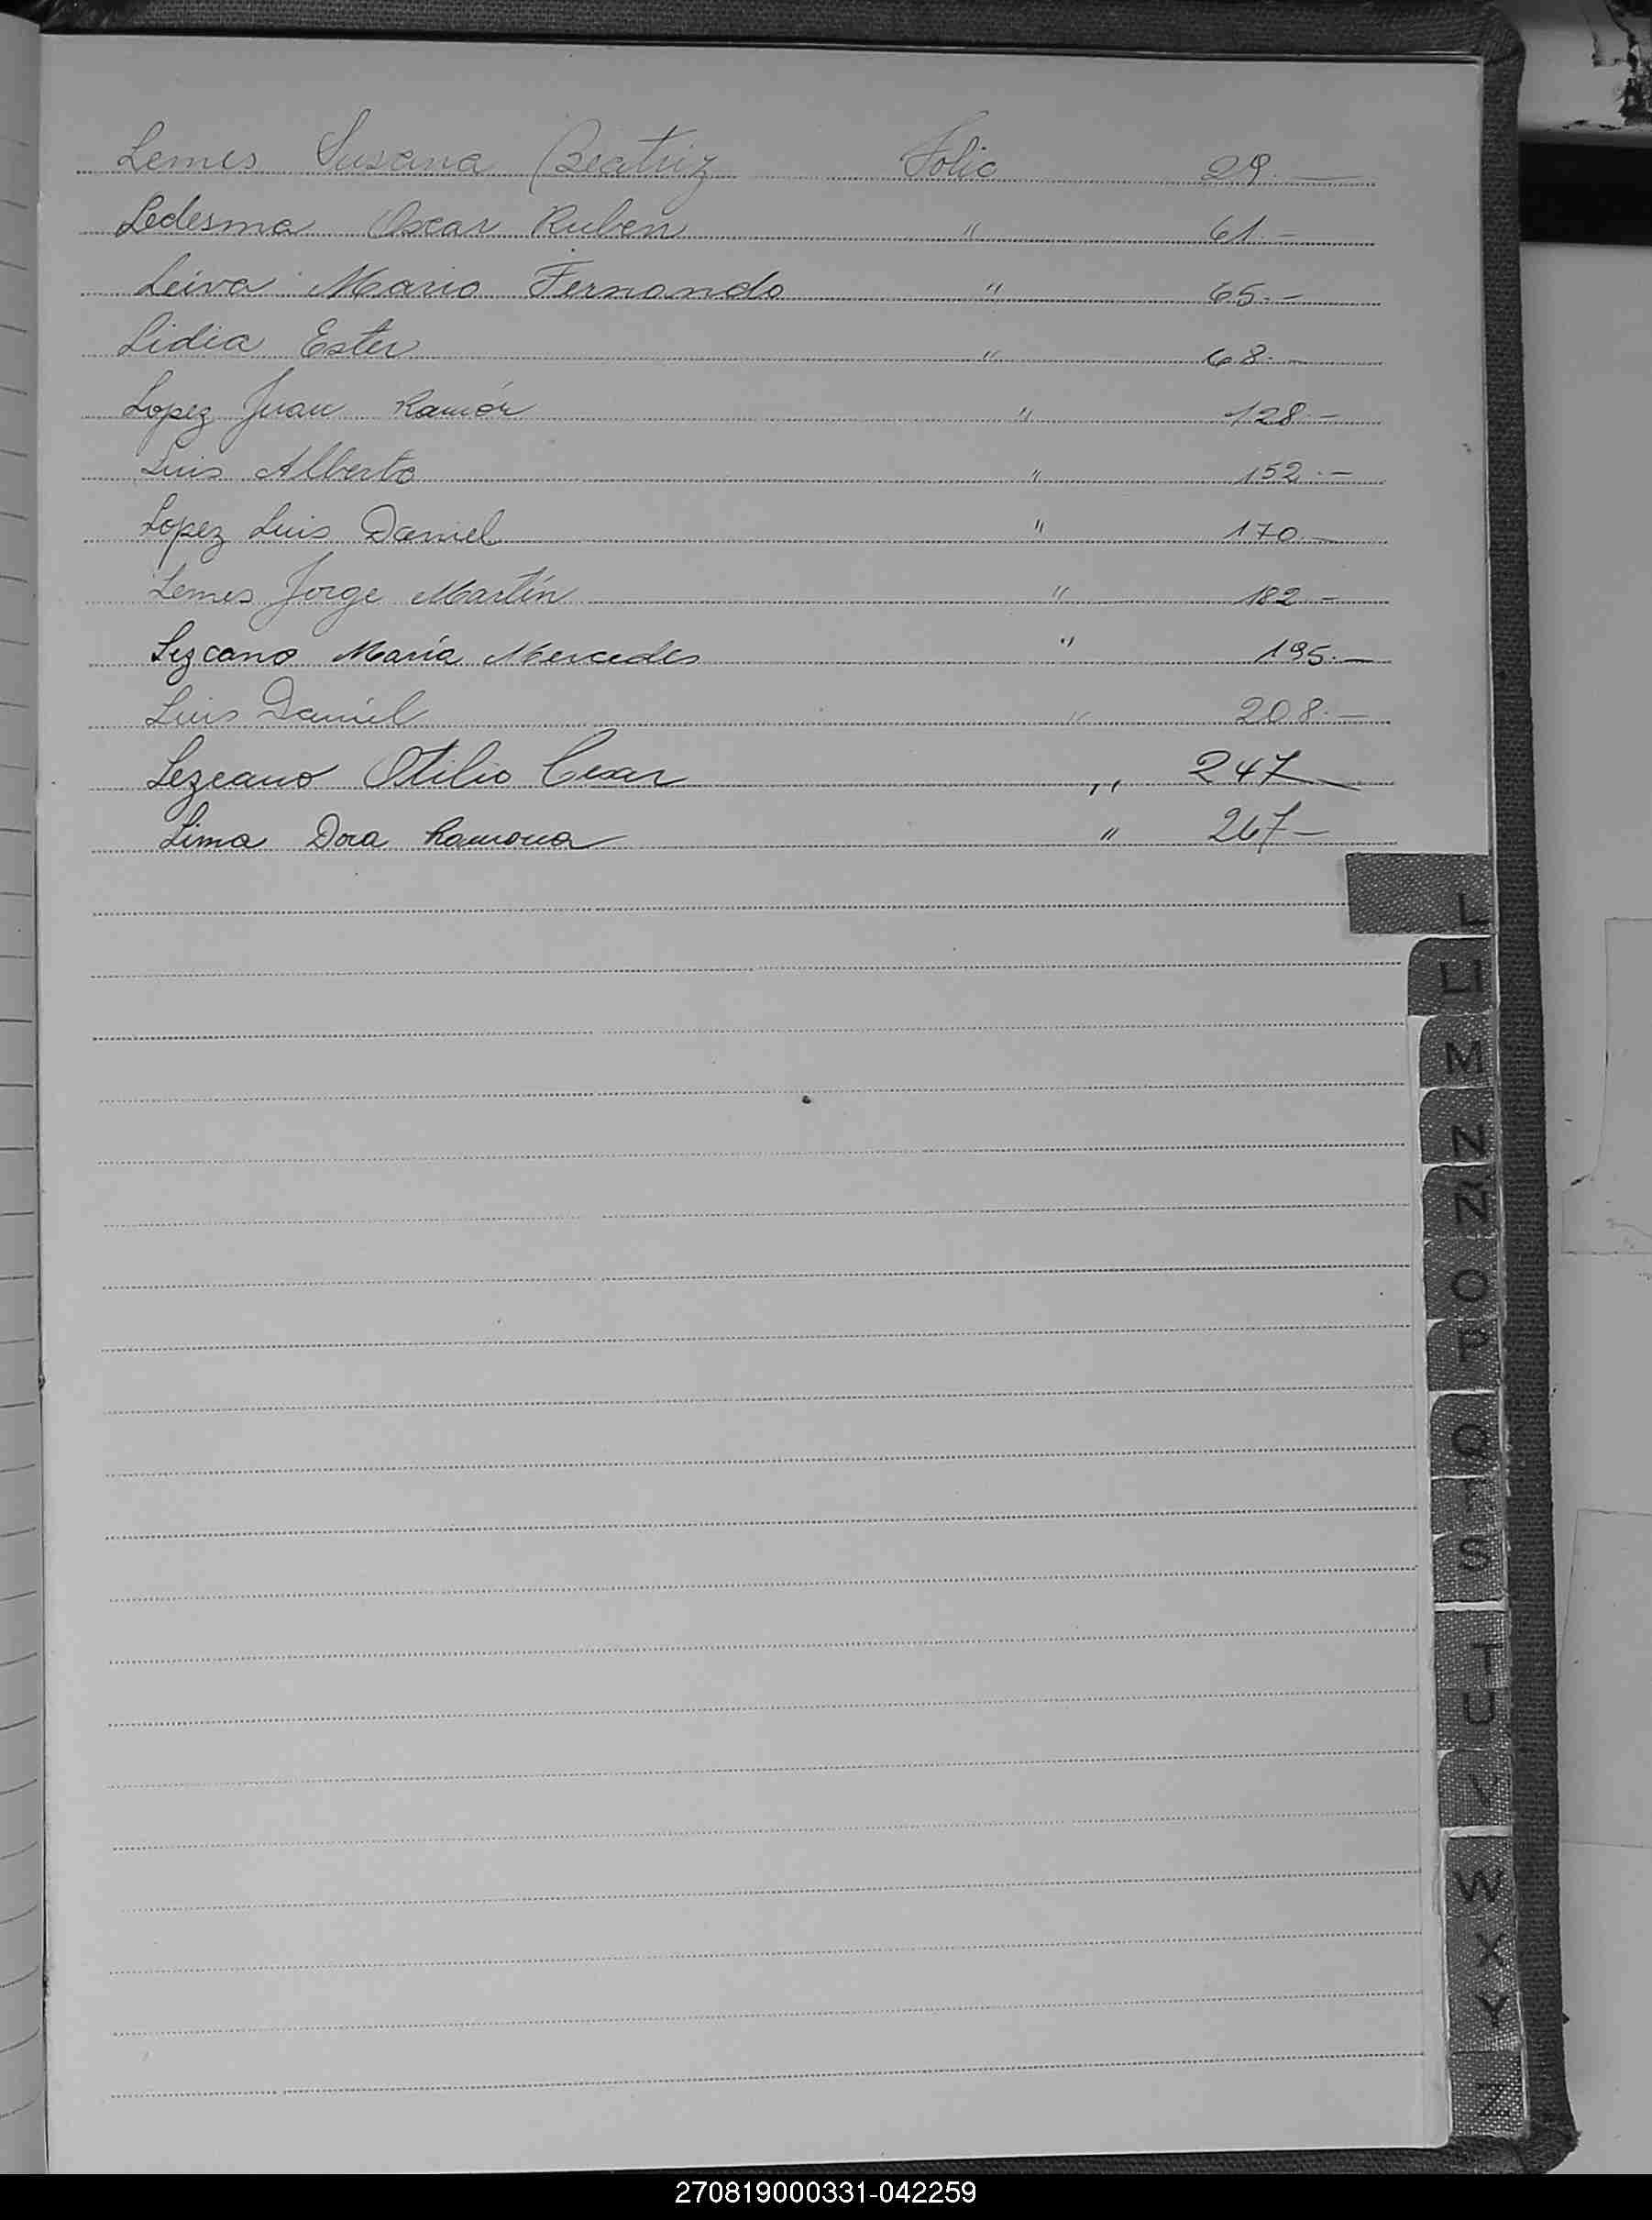 Lemes Susana Beatriz Folio 29.—
Ledesma Oscar Ruben " 61.—
Leiva Mario Fernando " 65.—
Lidia Ester " 68.—
Lopez Juan Ramón " 128.—
Luis Alberto " 152.—
Lopez Luis Daniel " 170.—
Lemes Jorge Martín " 182.—
Lezcano María Mercedes " 195.—
Luis Daniel " 208.—
Lezcano Otilio Cesar " 247—
Lima Dora Ramona " 267—
L
Ll
M
N
Ñ
O
P
Q
S
T
U
V
W
X
Y
Z
270819000331-042259